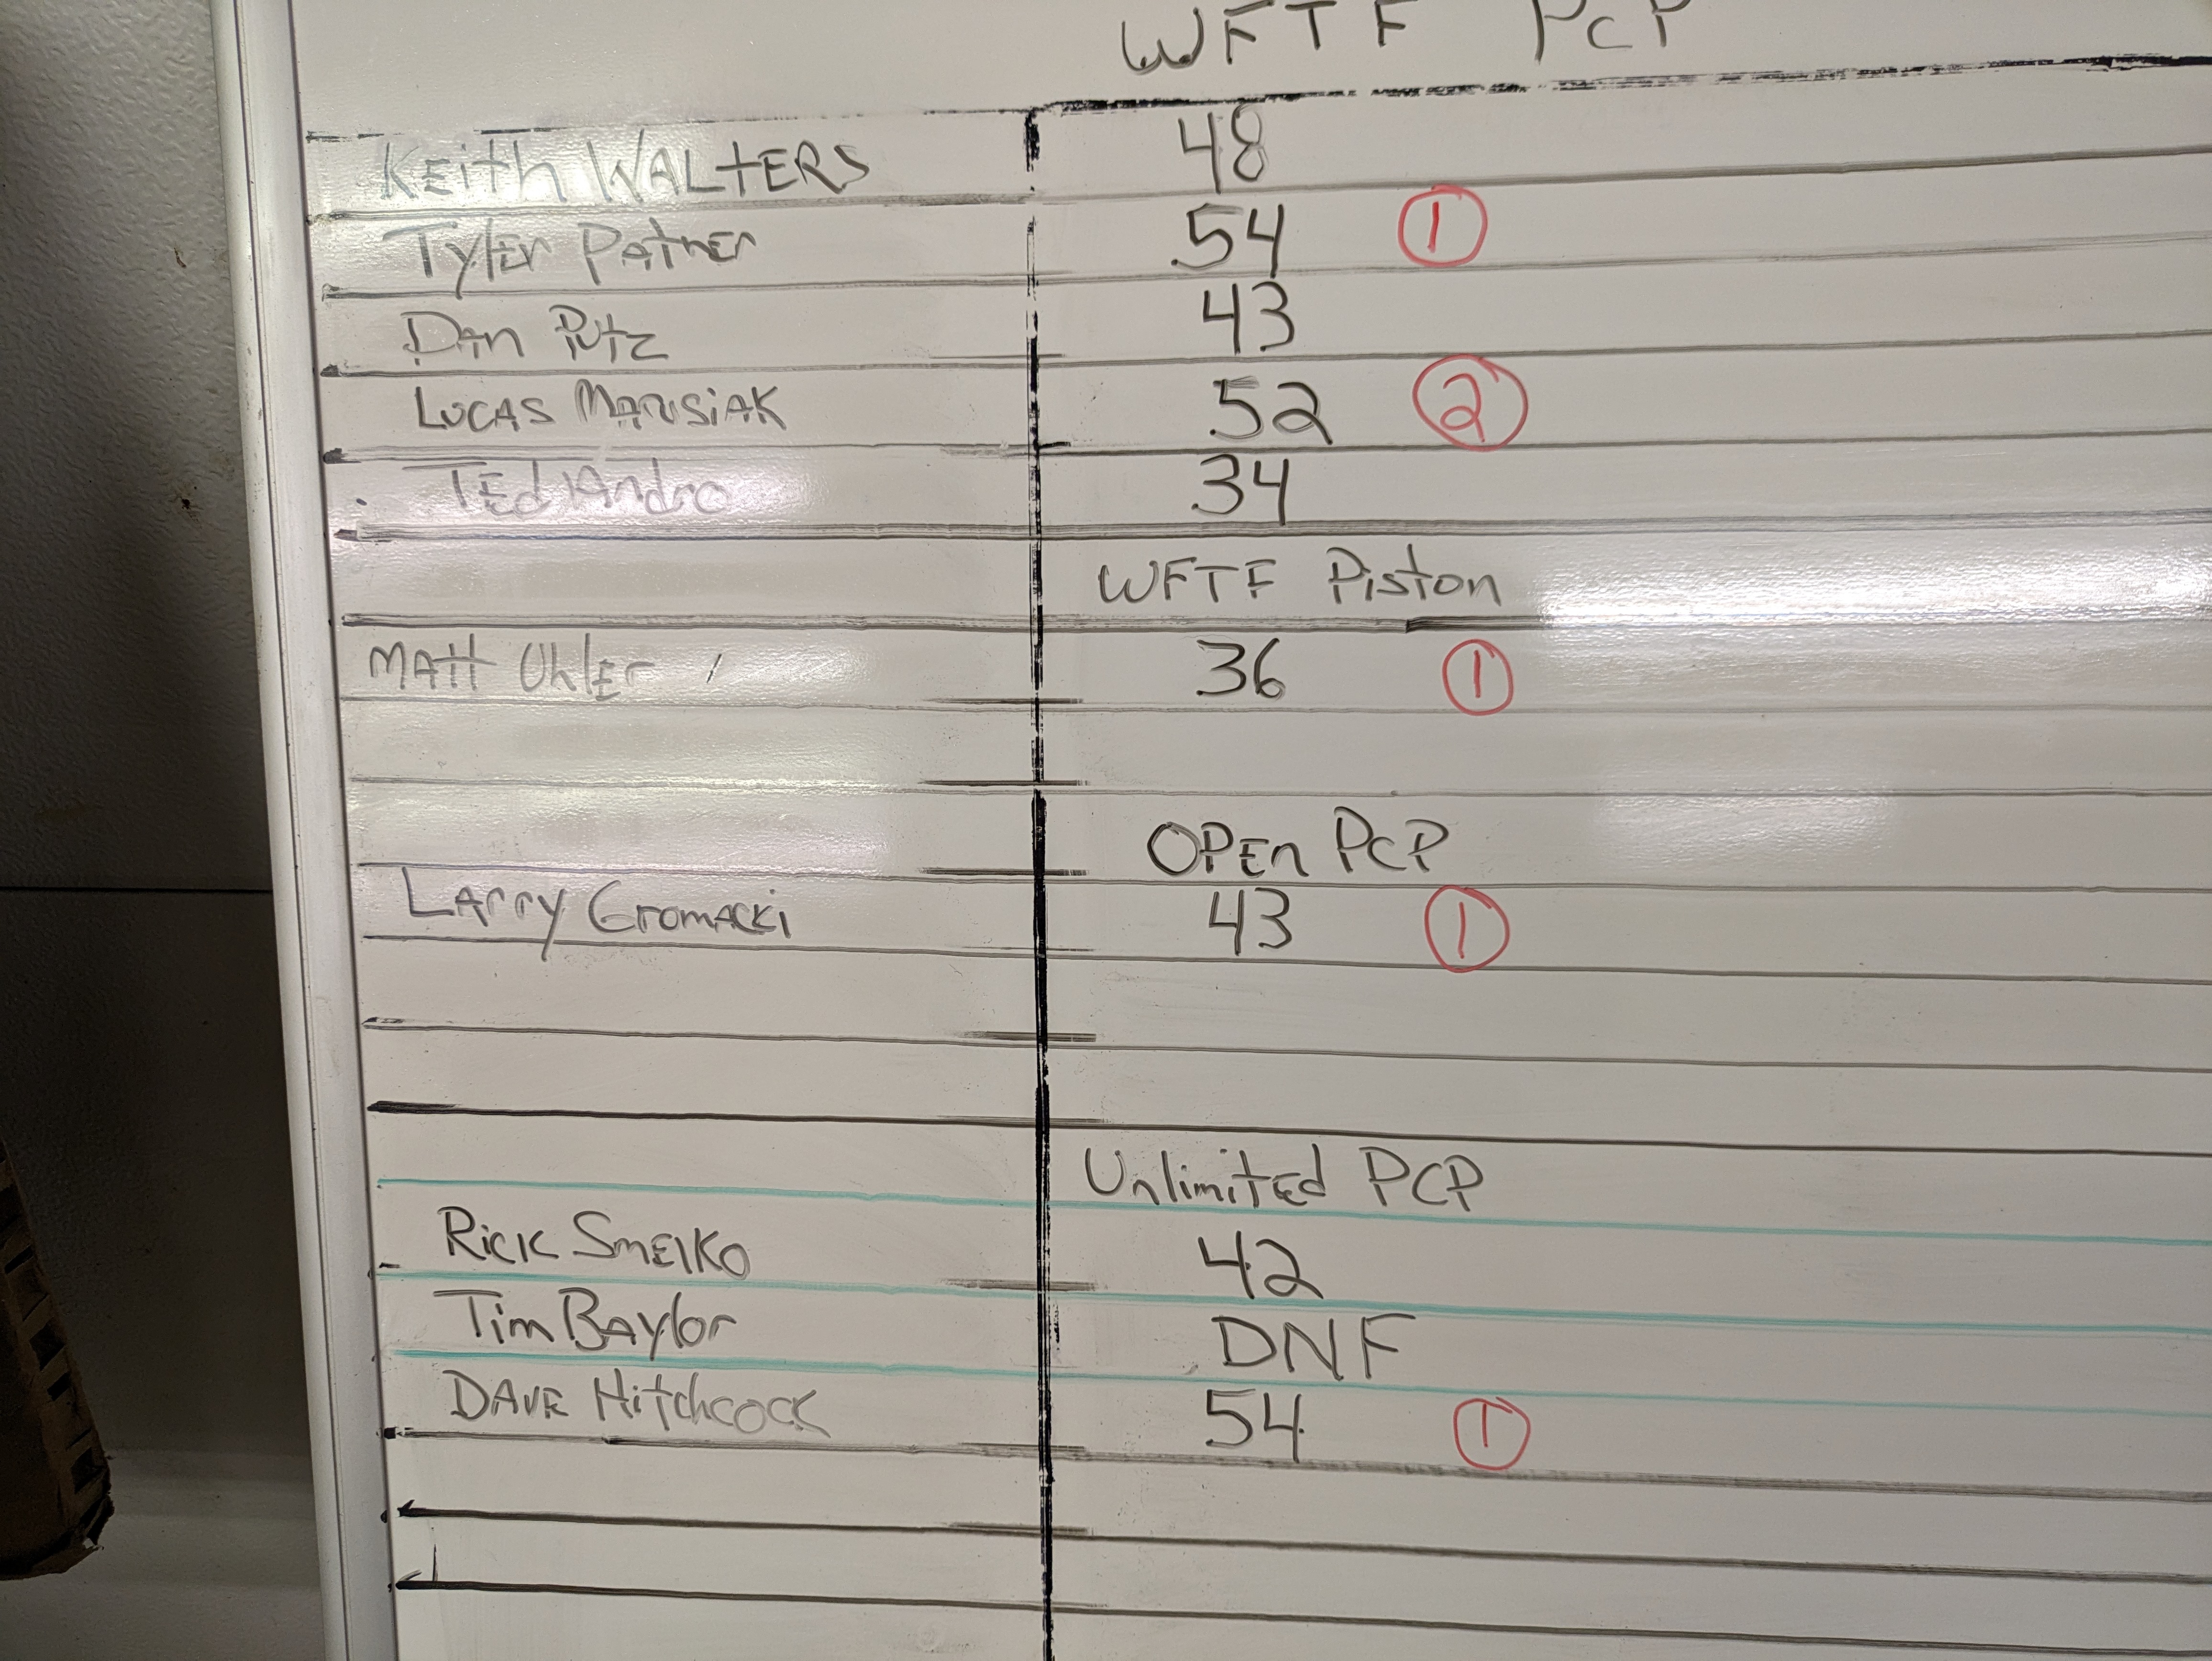 WFTF PCP
KEith WALTERS 48
Tyler Patner 54 1
Dan Putz 43
LUCAS MARUSIAK 52 2
TEd Andro 34
WFTF Piston
MAtt UhlEr 36 1
OPEn PCP
LArry GromAcki 43 1
UnlimitEd PCP
Rick SmEiKO 42
Tim BAylor DNF
DAVE Hitchcock 54 1